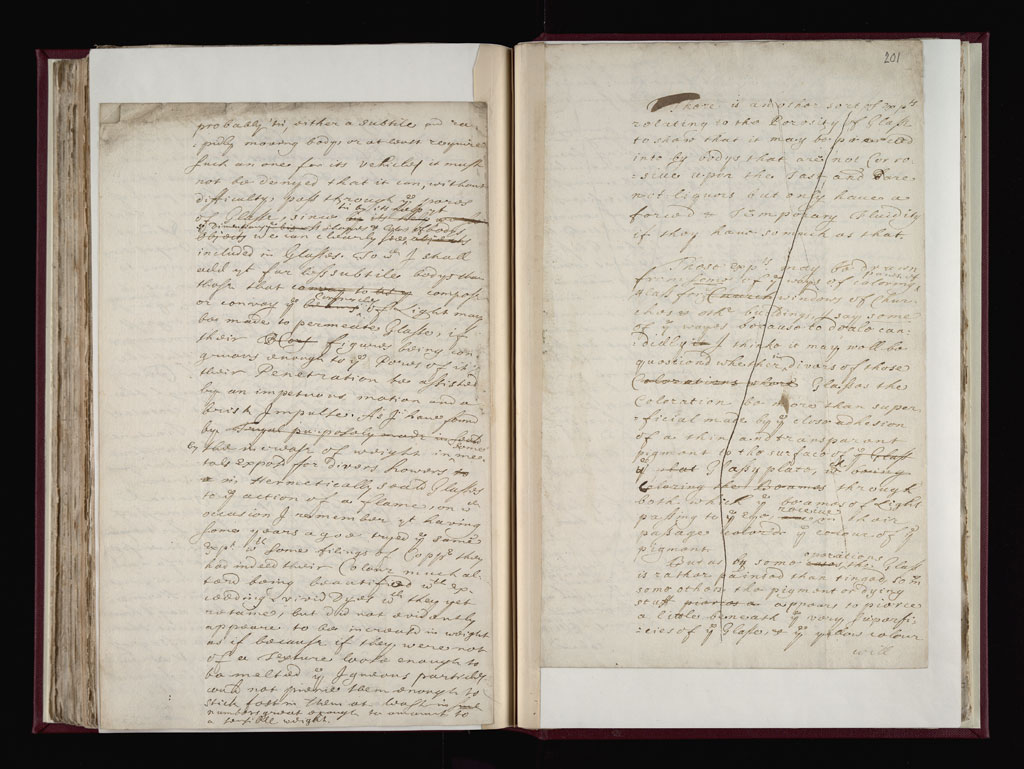 probably 'tis, either a subtile and ra-
pidly moving body, or at least requires
such an one for its vehicle; it must
not be denyed that it can, without
difficulty, pass through ye pores
of Glasse, since
tis by its help yt
objects we can clearly see
included in Glasses. To wch I shall
add yt far less subtile bodys than
those that compose
or convey ye of Light may
be made to permeate Glasse, if
their figures being con-
gruous enough to ye Pores of it
their Penetration be assisted
by an impetuous motion and a
brisk Impulse. As I have found
by purposely made in some
by the increase of weight in me-
tals expos'd for divers howers to
in Hermetically seal'd Glasses
to ye action of a flame; on wch
occasion I remember yt having
some years agoe tryed ye same
Expt. wth some filings of Copper they
had indeed their Colour much al-
terd being beautified wth ex-
ceeding vivid Dyes wch they yet
retaine; but did not evidently
appeare to be increas'd in weight
as if because if they were not
of a Texture loose enough to
be melted ye Igneous particles
could not pierce them enough to
stick fast in them at least in
numbers great enough to amount to
a sensible weight.
201
There is another sort of Expts
relating to the Porosity of Glasse
to show that it may be pierced
into by bodys that are not Corro-
sive upon the Tast and are
not liquors but only have a
forced & Temporary fluidity
if they have so much as that.
These Expts may be drawn
from some of ye ways of colouring
Glass for Church windows of Chur-
ches & othr buildings, I say some
of ye ways because to deale can-
didly I thinke it may well be
questiond whether in Divers of those
Colorations Glasses the
Coloration be more than super-
ficial made by ye close adhesion
of a thin and transparent
pigment to the surface of ye Glass
ye Glassy plate, wch being
through
both which ye beames of Light
passing to ye Eye in their
passage color'd ye colour of ye
pigment.
But as by some operations the Glass
is rather painted than tinged, so in
some others the pigment or dying
stuff appears to pierce
a little beneath ye very superfi-
cies of ye Glasse, & ye yellow colour
will